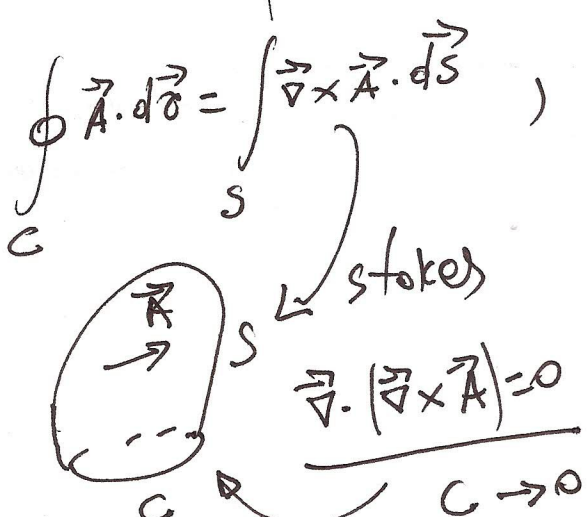 ∮ A⃗·dr⃗ = ∫ ∇⃗×A⃗·dS⃗ )
C S
stokes
A⃗
S
∇⃗·(∇⃗×A⃗)=0
C
C → 0